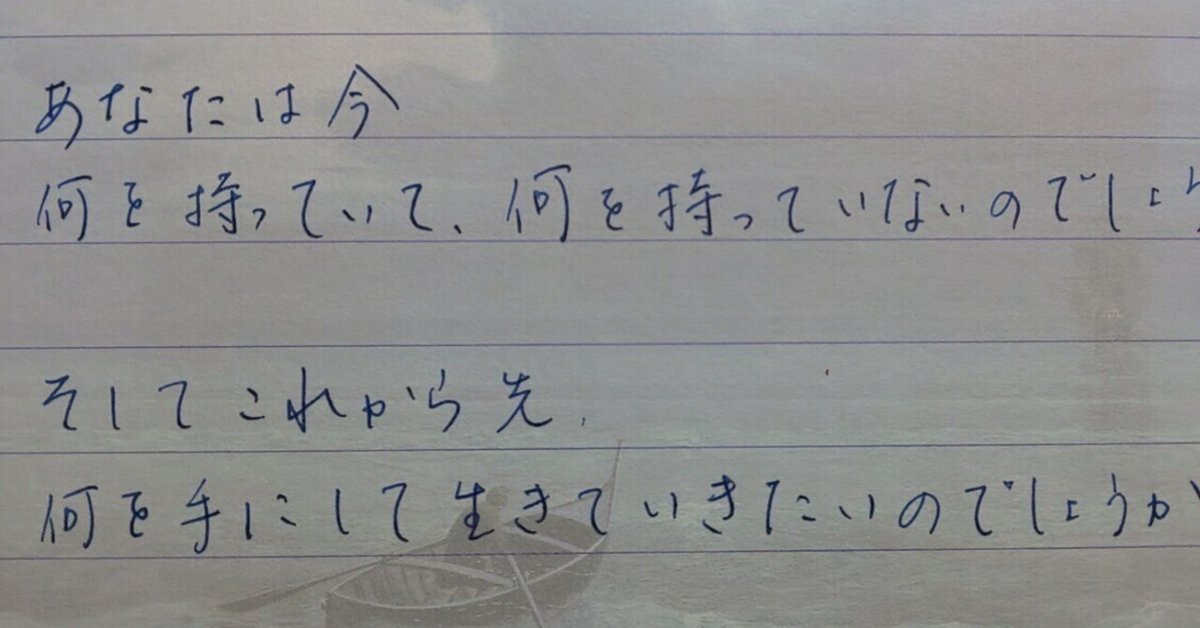 あなたは今
何を持っていて、何を持っていないのでしょう
そしてこれから先、
何を手にして生きていきたいのでしょうか